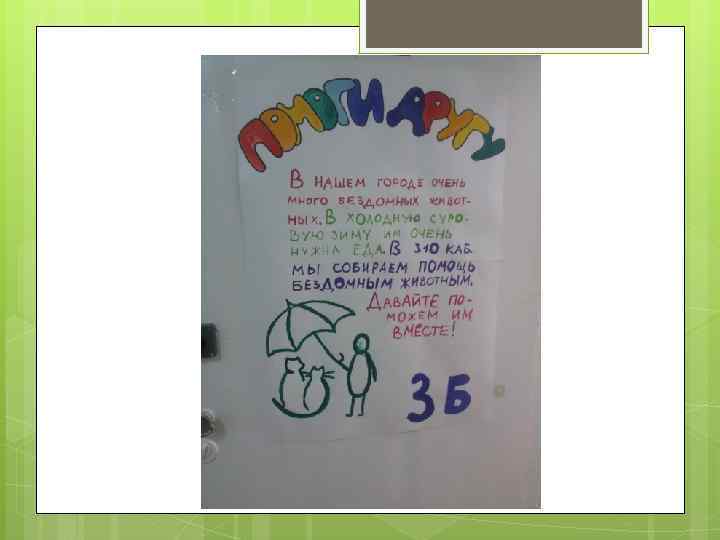 ПОМОГИ ДРУГУ
В НАШЕМ ГОРОДЕ ОЧЕНЬ
МНОГО БЕЗДОМНЫХ ЖИВОТ-
НЫХ. В ХОЛОДНУЮ СУРО-
ВУЮ ЗИМУ ИМ ОЧЕНЬ
НУЖНА ЕДА. В 310 КАБ.
МЫ СОБИРАЕМ ПОМОЩЬ
БЕЗДОМНЫМ ЖИВОТНЫМ.
ДАВАЙТЕ ПО-
МОЖЕМ ИМ
ВМЕСТЕ!
3 Б